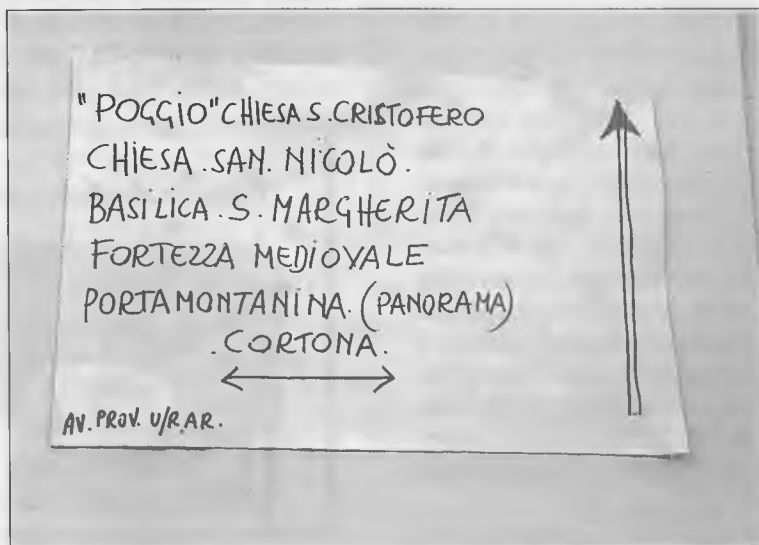 "POGGIO" CHIESA S. CRISTOFERO
CHIESA. SAN. NICOLÒ.
BASILICA. S. MARGHERITA
FORTEZZA MEDIOVALE
PORTA MONTANINA. (PANORAMA)
. CORTONA.
AV. PROV. U/R. AR.